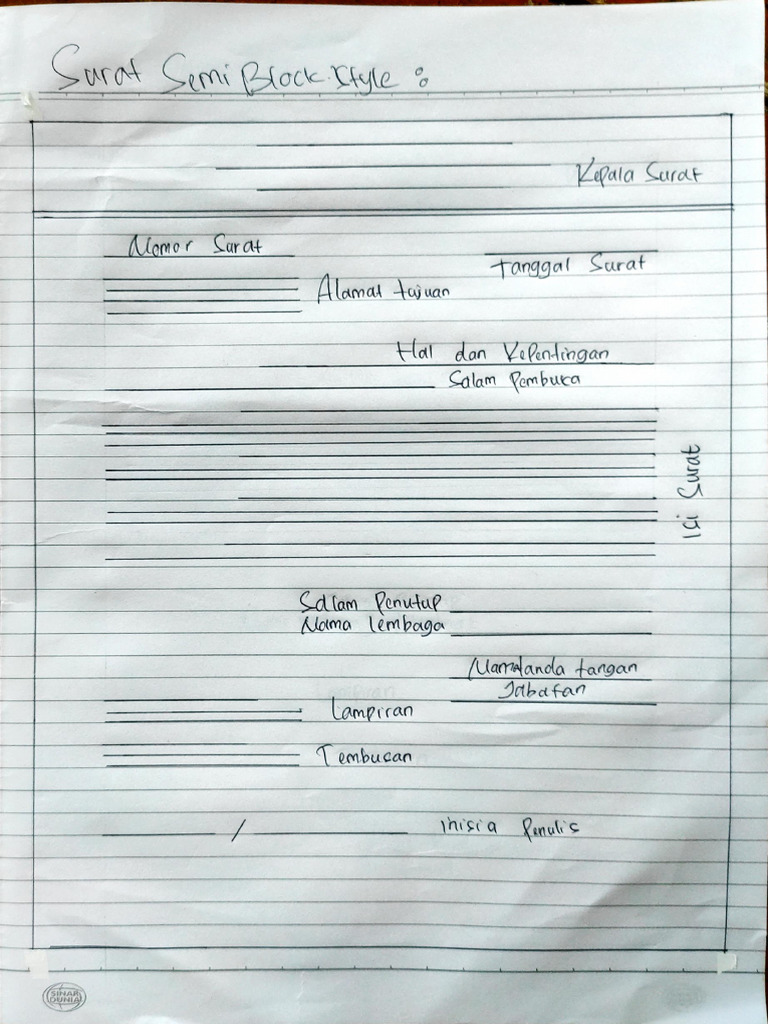 Surat Semi Block Style :
Kepala Surat
Nomor Surat
Tanggal Surat
Alamat tujuan
Hal dan Kepentingan
Salam Pembuka
Isi Surat
Salam Penutup
Nama lembaga
Namatanda tangan
Jabatan
Lampiran
Tembusan
/ inisia Penulis
SINAR DUNIA